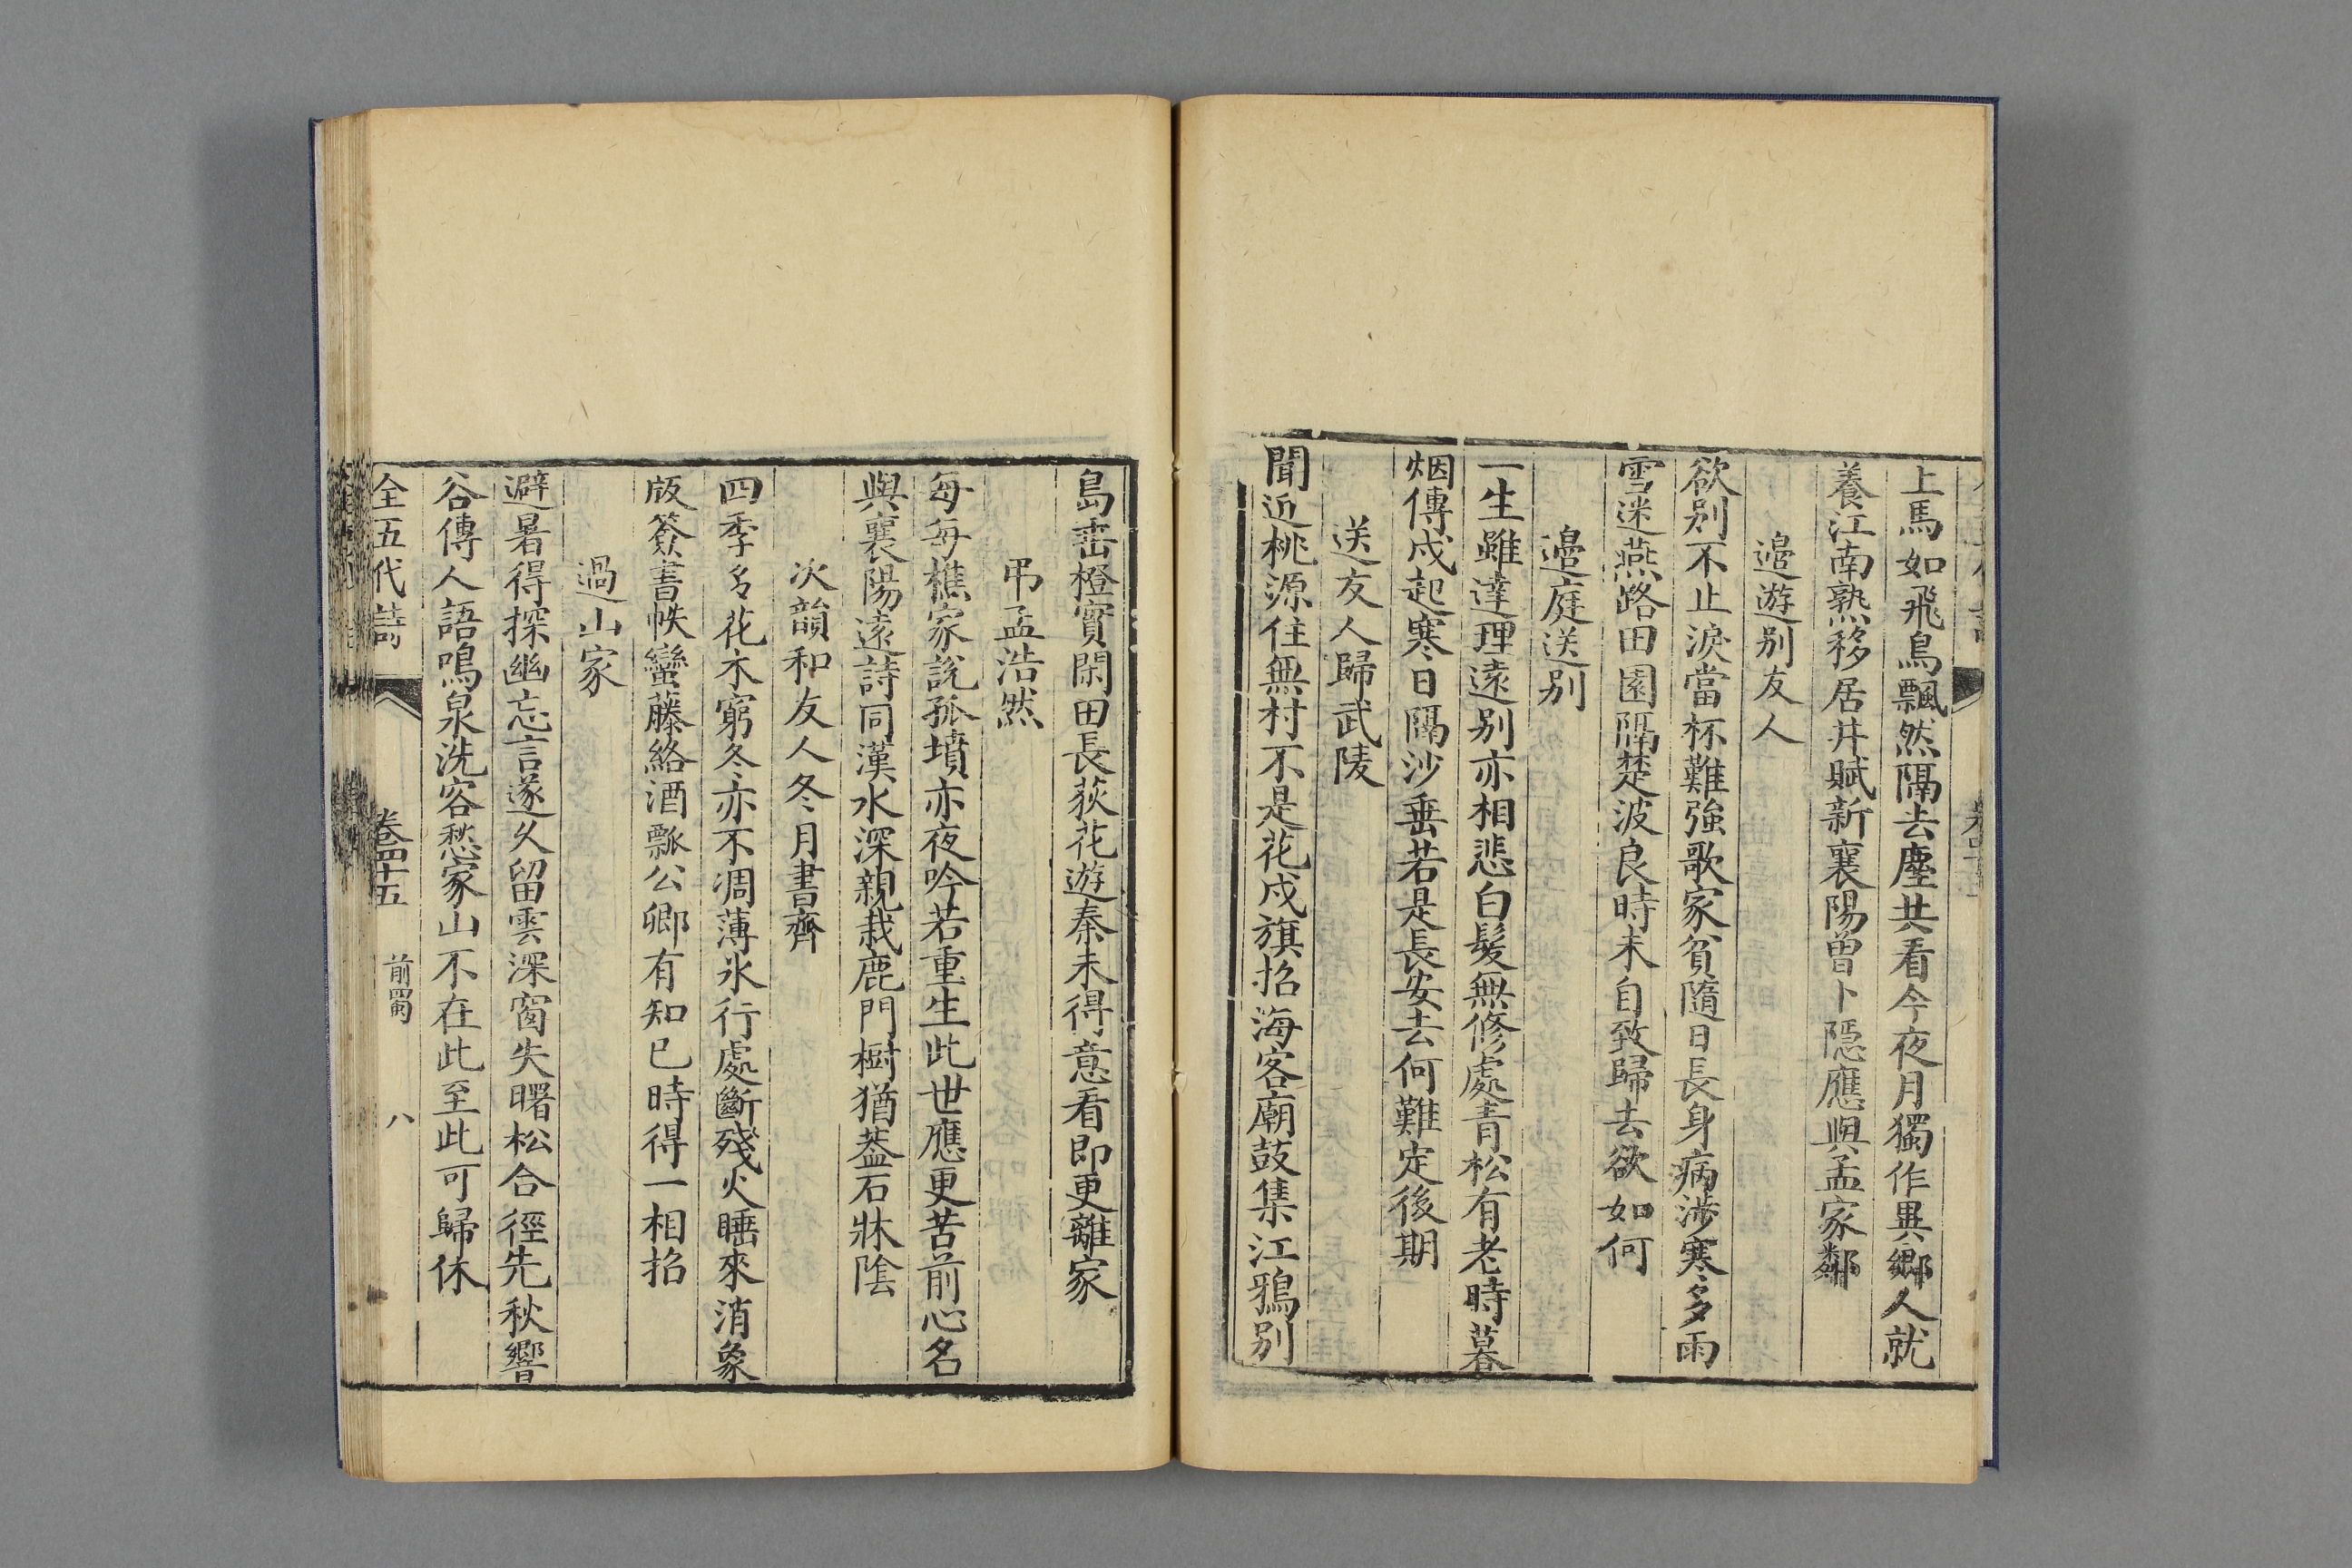 上馬如飛鳥飄然隔去塵共看今夜月獨作異鄉人就
養江南熟移居井賦新襄陽曾卜隱應與孟家鄰
邉遊别友人
欲别不止淚當杯難強歌家貧隨日長身病涉寒多雨
雪迷燕路田園隔楚波良時未自致歸去欲如何
邉庭送别
一生雖達理遠别亦相悲白髮無修處青松有老時暮
烟傳戍起寒日隔沙垂若是長安去何難定後期
送友人歸武陵
聞近桃源住無村不是花戍旗招海客廟鼓集江鴉别
島垂橙實閑田長荻花遊秦未得意看即更離家
弔孟浩然
每每樵家說孤墳亦夜吟若重生此世應更苦前心名
與襄陽遠詩同漢水深親栽鹿門樹猶葢石牀陰
次韻和友人冬月書齊
四季多花木窮冬亦不凋薄氷行處斷殘火睡來消象
版簽書帙蠻藤絡酒瓢公卿有知已時得一相招
過山家
避暑得探幽忘言遂久留雲深窗失曙松合徑先秋響
谷傳人語鳴泉洗客愁家山不在此至此可歸休
全五代詩 卷四十五 前蜀 八